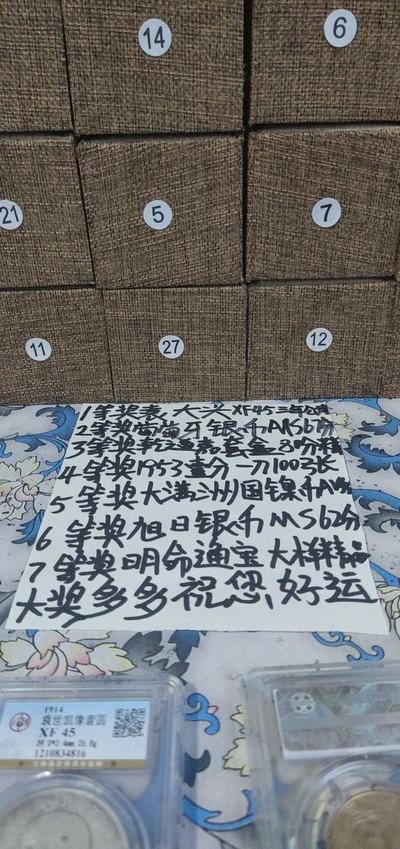 14
6
21
5
7
11
27
12
1等奖袁大头XF45三年
2等奖葡萄牙银币MS6分
3等奖 套金 8分
4等奖1953壹分一刀100张
5等奖大满洲国镍币
6等奖旭日银币MS62分
7等奖明命通宝大样精品
大奖多多祝您好运
1914
袁世凯像壹圆
XF 45
1210834816